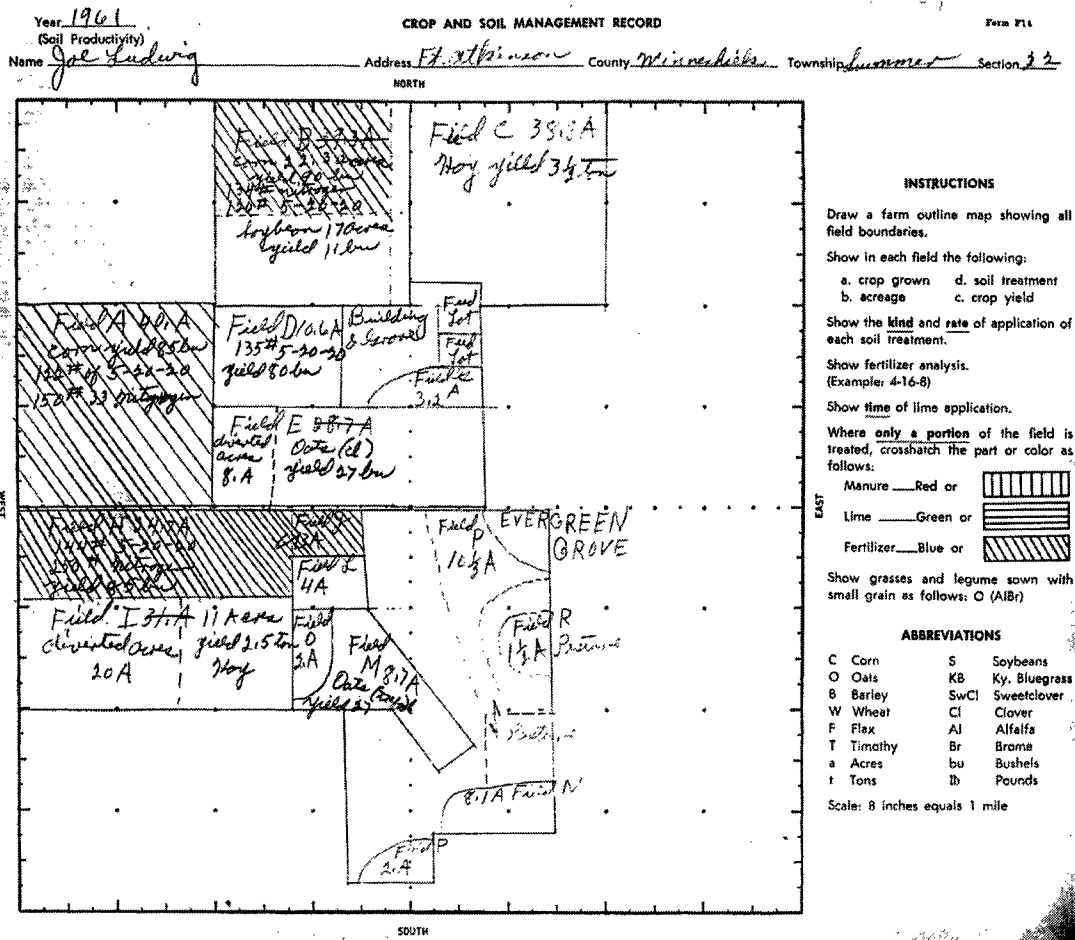 Year 1961
CROP AND SOIL MANAGEMENT RECORD
Form F14
(Soil Productivity)
Name Joe Ludwig Address Ft. Atkinson County Winneshiek Township Sumner Section 32
NORTH
Field B 39.3 A
corn 22.3 acres
yield 90 bu
134# nitrogen
120# 5-20-20
Soybean 17 acres
yield 11 bu
Field C 38.8 A
Hay yield 3½ ton
Field A 40. A
corn yield 85 bu
122# of 5-20-20
150# 33 nitrogen
Field D 10.6 A
135# 5-20-20
yield 80 bu
Building
& Grove
Feed
Lot
Feed
Lot
Field
3.2 A
Field E 28.7 A
diverted
acres
8. A
Oats (Cl)
yield 27 bu
Field H 24.7 A
144# 5-20-20
250# nitrogen
yield 85 bu
Field J
A
Field L
4 A
Field I 31. A
diverted acres
20 A
11 Acres
yield 2.5 ton
Hay
Field
O
2. A
Field
M 8.7 A
Oats
yield 27
Field
P
16½ A
EVERGREEN
GROVE
Field R
1½ A Pasture
Pasture
8.1 A Field N
Field P
2. A
WEST
EAST
SOUTH
INSTRUCTIONS
Draw a farm outline map showing all
field boundaries.
Show in each field the following:
a. crop grown d. soil treatment
b. acreage c. crop yield
Show the kind and rate of application of
each soil treatment.
Show fertilizer analysis.
(Example: 4-16-8)
Show time of lime application.
Where only a portion of the field is
treated, crosshatch the part or color as
follows:
Manure ___ Red or
Lime ___ Green or
Fertilizer ___ Blue or
Show grasses and legume sown with
small grain as follows: O (AlBr)
ABBREVIATIONS
C Corn S Soybeans
O Oats KB Ky. Bluegrass
B Barley SwCl Sweetclover
W Wheat Cl Clover
F Flax Al Alfalfa
T Timothy Br Brome
a Acres bu Bushels
t Tons lb Pounds
Scale: 8 inches equals 1 mile